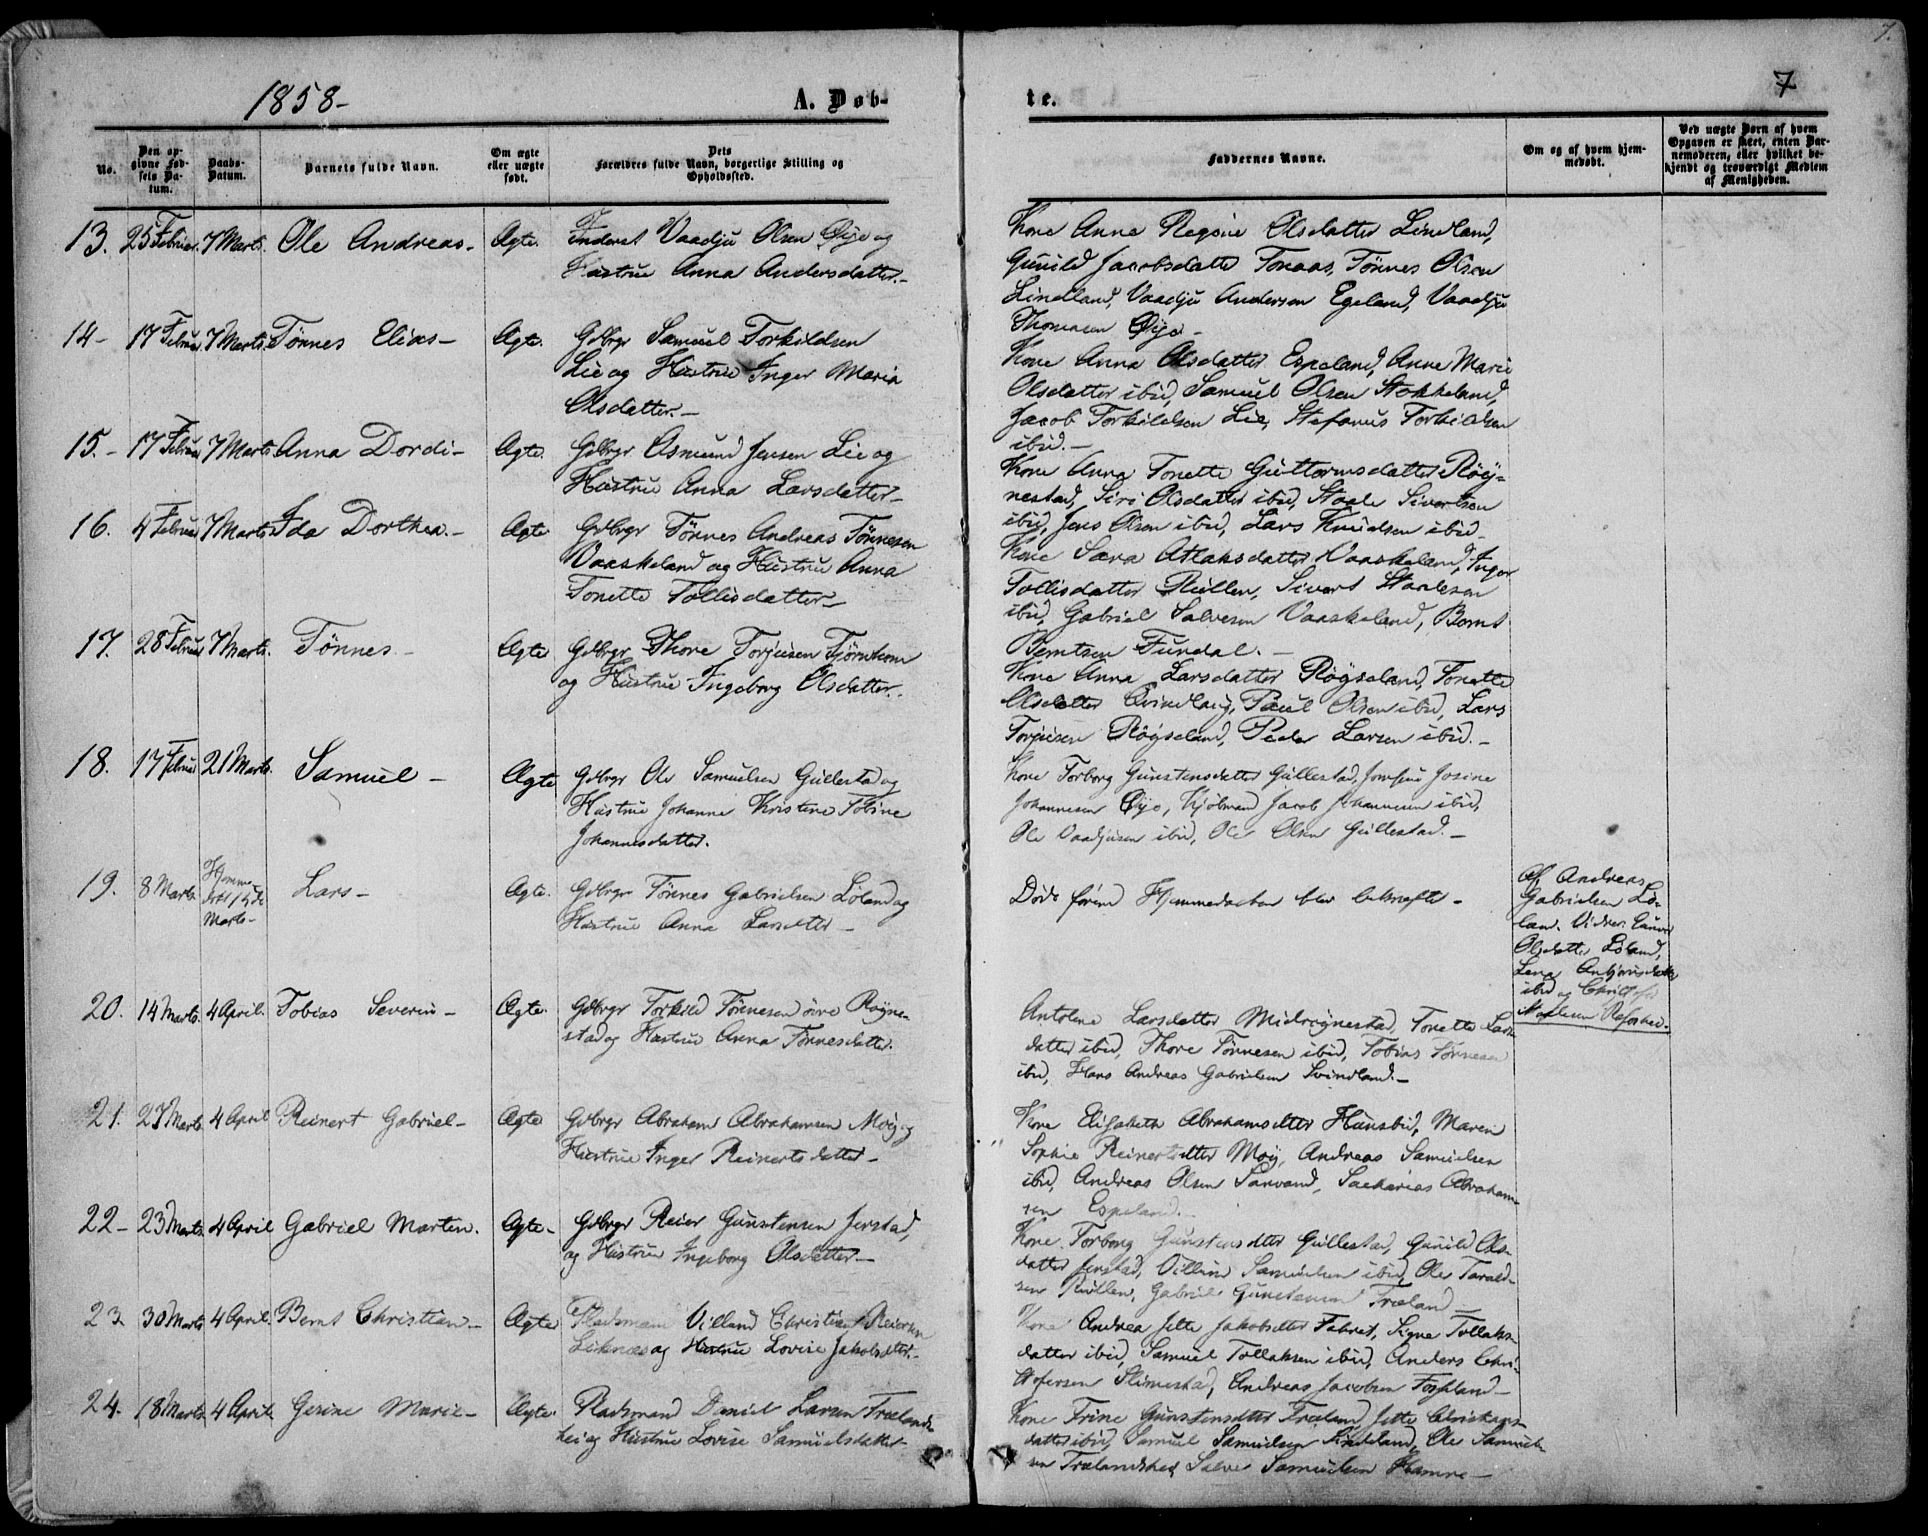 7.
1858-
A. Døb-
te.
7
No.
Den op-
givne Fød-
sels Da-
tum.
Daabs-
Datum.
Barnets fulde Navn.
Om ægte
eller uægte
født.
Dets
Forældres fulde Navn, borgerlige Stilling og
Opholdssted.
Faddernes Navne.
Om og af hvem hjem-
medøbt.
Ved uægte Børn af hvem
Opgaven er skeet, enten Bar-
nemoderen, eller hvilket be-
kjendt og troværdigt Medlem
af Menigheden.
13. 25 Februar. 7 Marts. Ole Andreas- Ægte. Vaadju Olsen Øye og
Hustrue Anna Andersdatter.-
Kone Anna Regine Olsdatter Lindland,
Gunild Jacobsdatter Tonaas, Tønnes Olsen
Lindland, Vaadju Andersen Egeland, Vaadju
Thomasen Øye-
14- 17 Februar 7 Marts. Tønnes Elias- Ægte. Gdbrgr Samuel Torkildsen
Lie og Hustrue Inger Maria
Olsdatter.-
Kone Anna Olsdatter Espeland, Anne Marie
Olsdatter ibid, Samuel Olsen Stokkeland,
Jacob Torkildsen Lie, Stefanus Torkildsen
ibid.-
15.- 17 Februar 7 Marts Anna Dordi- Ægte. Gdbrgr Asmund Jensen Lie og
Hustrue Anna Larsdatter-
Kone Anna Tonette Guttormsdatter Røy-
nestad, Siri Olsdatter ibid, Staale Sivertsen
ibid, Jens Olsen ibid, Lars Knudsen ibid-
16. 4 Februar 7 Marts Ida Dorthea.- Ægte Gdbrgr Tønnes Andreas Tønnesen
Vaaskeland og Hustrue Anna
Tonette Tollisdatter-
Kone Sara Atlaksdatter Vaaskeland, Inger
Tollisdatter Rullen, Sivert Staalesen
ibid, Gabriel Salvesen Vaaskeland, Bernt
Berntsen Fundal.-
17. 28 Februar 7 Marts. Tønnes- Ægte Gdbrgr Thore Torjusen Tjørnhom
og Hustrue Ingeborg Olsdatter.
Kone Anna Larsdatter Røyseland, Tonette
Olsdatter Qvindlaug, Paul Olsen ibid, Lars
Torjusen Røyseland, Peder Larsen ibid.-
18. 17 Februar 21 Marts. Samuel- Ægte Gdbrgr Ole Samuelsen Gullestad og
Hustrue Johanne Kristine Tobine
Johannesdatter.
Kone Torborg Gunstensdatter Gullestad, Jomfrue Josine
Johannesen Øye, Kjøbmand Jacob Johannesen ibid,
Ole Vaadjusen ibid, Ole Olsen Gullestad.-
19. 8 Marts. Hjemme
døbt
Marts- Lars- Ægte. Gdbrgr Tønnes Gabrielsen Løland og
Hustrue Anna Larsdatter-
Døde førend Hjemmedaaben blev bekræftet-
Af Andreas
Gabrielsen Lø-
land. Vidner:
Olsdatter Løland,
Lena
ibid og
20. 14 Marts. 4 April. Tobias Severin- Ægte. Gdbrgr Torkild Tønnesen øvre Røyne-
stad og Hustrue Anna Tønnesdatter.
Antolene Larsdatter Midrøynestad, Tonette Lars-
datter ibid, Thore Tønnesen ibid, Tobias Tønnesen
ibid, Hans Andreas Gabrielsen Svindland.-
21. 27 Marts. 4 April Reinert Gabriel- Ægte Gdbrgr Abraham Abrahamsen Moi og
Hustrue Inger Reinertsdatter-
Kone Elisabeth Abrahamsdtter Hunsbid, Maren
Sophie Reinertsdtter Moy, Andreas Samuelsen
ibid, Andreas Olsen Sarvand, Sacharias Abraham-
sen Espeland.-
22- 23 Marts. 4 April Gabriel Martin. Ægte- Gdbrgr Reier Gunstensen Jerstad,
og Hustrue Ingeborg Olsdatter-
Kone Torborg Gunstensdtter Gullestad, Gunild Ols-
datter Jerstad, Villum Samuelsen ibid, Ole Tarald-
sen Rullen, Gabriel Gunstensen Træland-
23 30 Marts 4 April. Bernt Christian- Ægte Pladsmand Villand Christian Reiersen
Liknes og Hustrue Lovise Jakobsdtter.-
Kone Andrea Jitte Jakobsdtter Fabret, Signe Tollaks-
datter ibid, Samuel Tollaksen ibid, Anders Chri-
stofersen Slimestad, Andreas Jacobsen
24. 18 Marts. 4 April Gesine Marie- Ægte. Pladsmand Daniel Larsen Trælands-
hei og Hustrue Lovise Samuelsdatter-
Kone Trine Gunstensdtter Træland, Jitte Christians-
datter ibid, Samuel Samuelsen Ole Samuel-
sen Trælandshei, Salve Samuelsen Hamre-